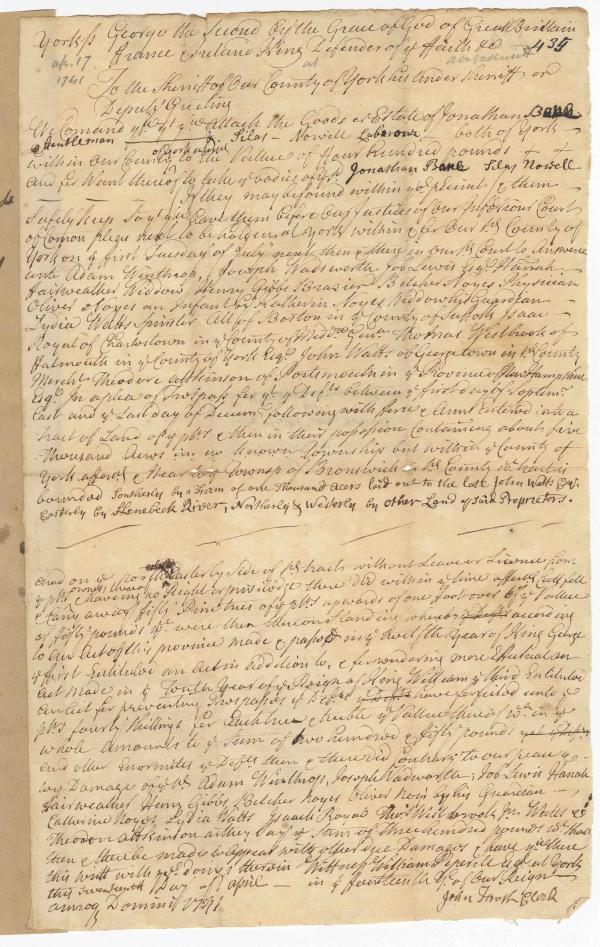 Yorkss George the Second by the Grace of God of Great Brittain
France & Ireland King Defender of ye Faith &c 434
ap. 17
1741
To the Sherriff of Our County of York his Under Sherriff or
Deputy Greeting
We Comand you yt you Attach the Goods or Estate of Jonathan Bane
Gentleman Silas Nowell Labourer both of York
of York aforesd
within our County to the Vallue of four hundred pounds
and for Want thereof to take ye bodies of ye sd Jonathan Bane Silas Nowell
if they may be found within yr precinct & them
Safely keep so yt you have them before Our Justices of Our Inferiour Court
of Comon pleas next to be holden at York within & for Our sd County of
York on ye first Tuesday of July next then & there in our sd Court to Answer
unto Adam Winthrop, Joseph Wadsworth Job Lewis Esqrs Hannah
Fairweather Widdow, Henry Gibbs Brazier Belcher Noyes Physician
Oliver Noyes an Infant by Katherin Noyes Widdow his Guardian
Lydia Watts Spinster All of Boston in ye County of Suffolk Isaac
Royal of Charlstown in ye County of Middx Gent Thomas Westbrook of
Falmouth in ye County of York Esqr John Watts of Georgetown in sd County
Mercht Theodore Atkinson of Portsmouth in ye Province of New Hampshire
Esqr In a plea of Trespass for yt ye Defts between ye first day of Septemr
Last and ye Last day of Decemr following with force & Arms Entered into a
tract of Land of ye plts & then in their possession containing about five
thousand Acres in no known Township but within ye County of
York aforesd & Near Township of Brunswick in sd County wch tract is
bounded Southerly by a Farm of one Thousand Acers laid out to the late John Watts Esqr
Easterly by Kenebeck River, Northerly & Westerly by other Land of said Proprietors.
and on ye northeasterly Side of sd tract without Leave or Licence from
ye plts owners thereof & having no Right or priviledge there Did within ye time aforesd Cut fell
& Carry away fifty Pine trees of ye plts upwards of one foot over of ye Vallue
of fifty pounds yt were then thereon Standing whereby according
to an Act of this province made & passed in ye twelfth Year of King George
ye first Entituled an Act in addition to, & for rendering more Effectual an
Act made in ye Tenth Year of ye Reign of King William ye third Entituled
an Act for preventing Trespasses ye Defts have forfeited unto ye
plts fourty Shillings for Each tree & treble ye Vallue thereof wch in ye
whole Amounts to ye Sum of two hundred & fifty pounds
and other Enormities ye Defts then & there did contrary to our peace & to
ye Damage of ye sd Adam Winthrop, Joseph Wadsworth, Job Lewis Hanah
Fairweather Henry Gibbs Belcher Noyes Oliver Noyes by his Guardian
Catherine Noyes Lydia Watts Isaac Royal Thos Westbrook Jno Watts &
Theodore Atkinson as they say ye Sum of three hundred pounds wch shall
then & there be made to appear with other due Damages & have you there
this writt with yr doings therein Wittness William Pepperell Esqr at York
this Seventeenth Day of April in ye fourteenth Yr of Our Reign
annoq Domini 1741
John Frost Clerk